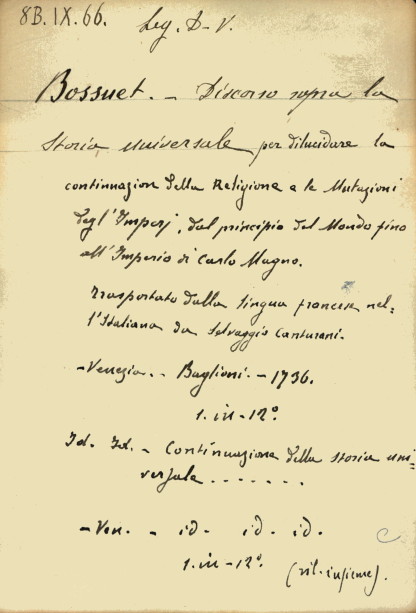 8B. IX. 66.
Leg. D-V.
Bossuet. - Discorso sopra la
Storia universale per dilucidare la
continuazion della Religione e le Mutazioni
degl'Imperj, dal principio del Mondo fino
all'Imperio di Carlo Magno.
Trasportato dalla lingua francese nel=
l'Italiana da Selvaggio Canturani.
- Venezia. - Baglioni. - 1736.
1. in - 12°.
Id. Id. - Continuazione della storia uni=
versale - - - - - - -
- Ven. - id. id. id.
1. in - 12°. (ril. insieme).